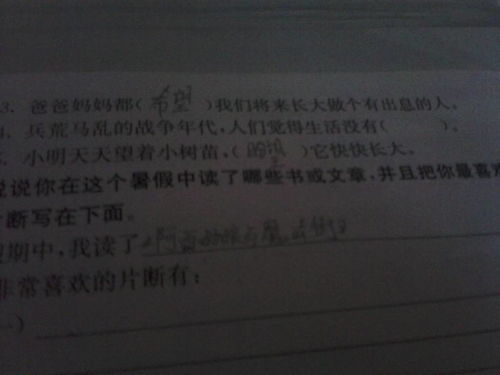 3. 爸爸妈妈都(希望)我们将来长大做个有出息的人。
4. 兵荒马乱的战争年代,人们觉得生活没有(    )。
小明天天望着小树苗,(盼望)它快快长大。
说说你在这个暑假中读了哪些书或文章,并且把你最喜欢
片断写在下面。
期中,我读了
非常喜欢的片断有: